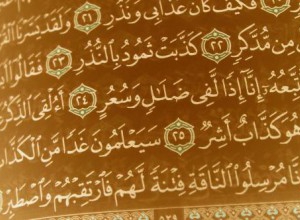 فَكَيْفَ كَانَ عَذَابِى وَنُذُرِ ٢١ وَلَقَدْ يَسَّرْنَا
مِن مُّدَّكِرٍ ٢٢ كَذَّبَتْ ثَمُودُ بِٱلنُّذُرِ ٢٣ فَقَالُوٓا۟
تَّبِعُهُۥٓ إِنَّآ إِذًا لَّفِى ضَلَـٰلٍ وَسُعُرٍ ٢٤ أَءُلْقِىَ ٱلذِّكْرُ
هُوَ كَذَّابٌ أَشِرٌ ٢٥ سَيَعْلَمُونَ غَدًا مَّنِ ٱلْكَذَّابُ
نَّا مُرْسِلُوا۟ ٱلنَّاقَةِ فِتْنَةً لَّهُمْ فَٱرْتَقِبْهُمْ وَٱصْطَبِرْ